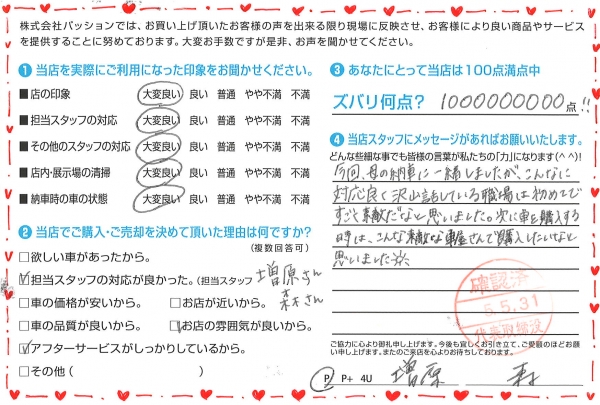 株式会社パッションでは、お買い上げ頂いたお客様の声を出来る限り現場に反映させ、お客様により良い商品やサービス
を提供することに努めております。大変お手数ですが是非、お声を聞かせてください。
1 当店を実際にご利用になった印象をお聞かせください。
■店の印象 大変良い 良い 普通 やや不満 不満
■担当スタッフの対応 大変良い 良い 普通 やや不満 不満
■その他のスタッフの対応 大変良い 良い 普通 やや不満 不満
■店内・展示場の清掃 大変良い 良い 普通 やや不満 不満
■納車時の車の状態 大変良い 良い 普通 やや不満 不満
2 当店でご購入・ご売却を決めて頂いた理由は何ですか?
(複数回答可)
□欲しい車があったから。
☑担当スタッフの対応が良かった。(担当スタッフ 増原さん
森さん
□車の価格が安いから。 □お店が近いから。
□車の品質が良いから。 ☑お店の雰囲気が良いから。
☑アフターサービスがしっかりしているから。
□その他 ( )
3 あなたにとって当店は100点満点中
ズバリ何点? 10000000000点!!
4 当店スタッフにメッセージがあればお願いいたします。
どんな些細な事でも皆様の言葉が私たちの「力」になります(^ ^)!
今回、母の納車に一緒しましたが、こんなに
対応良く沢山話をしている職場は初めてで
すごく素敵だなと思いました。次に車を購入する
時は、こんな素敵な車屋さんで購入したいなと
思いました
確認済
5.5.31
代表取締役
ご協力に心より御礼申し上げます。今後も宜しくお引き立て、ご愛顧のほどお願
い申し上げます。またのご来店を心よりお待ちしております。
P P+ 4U 増原 森